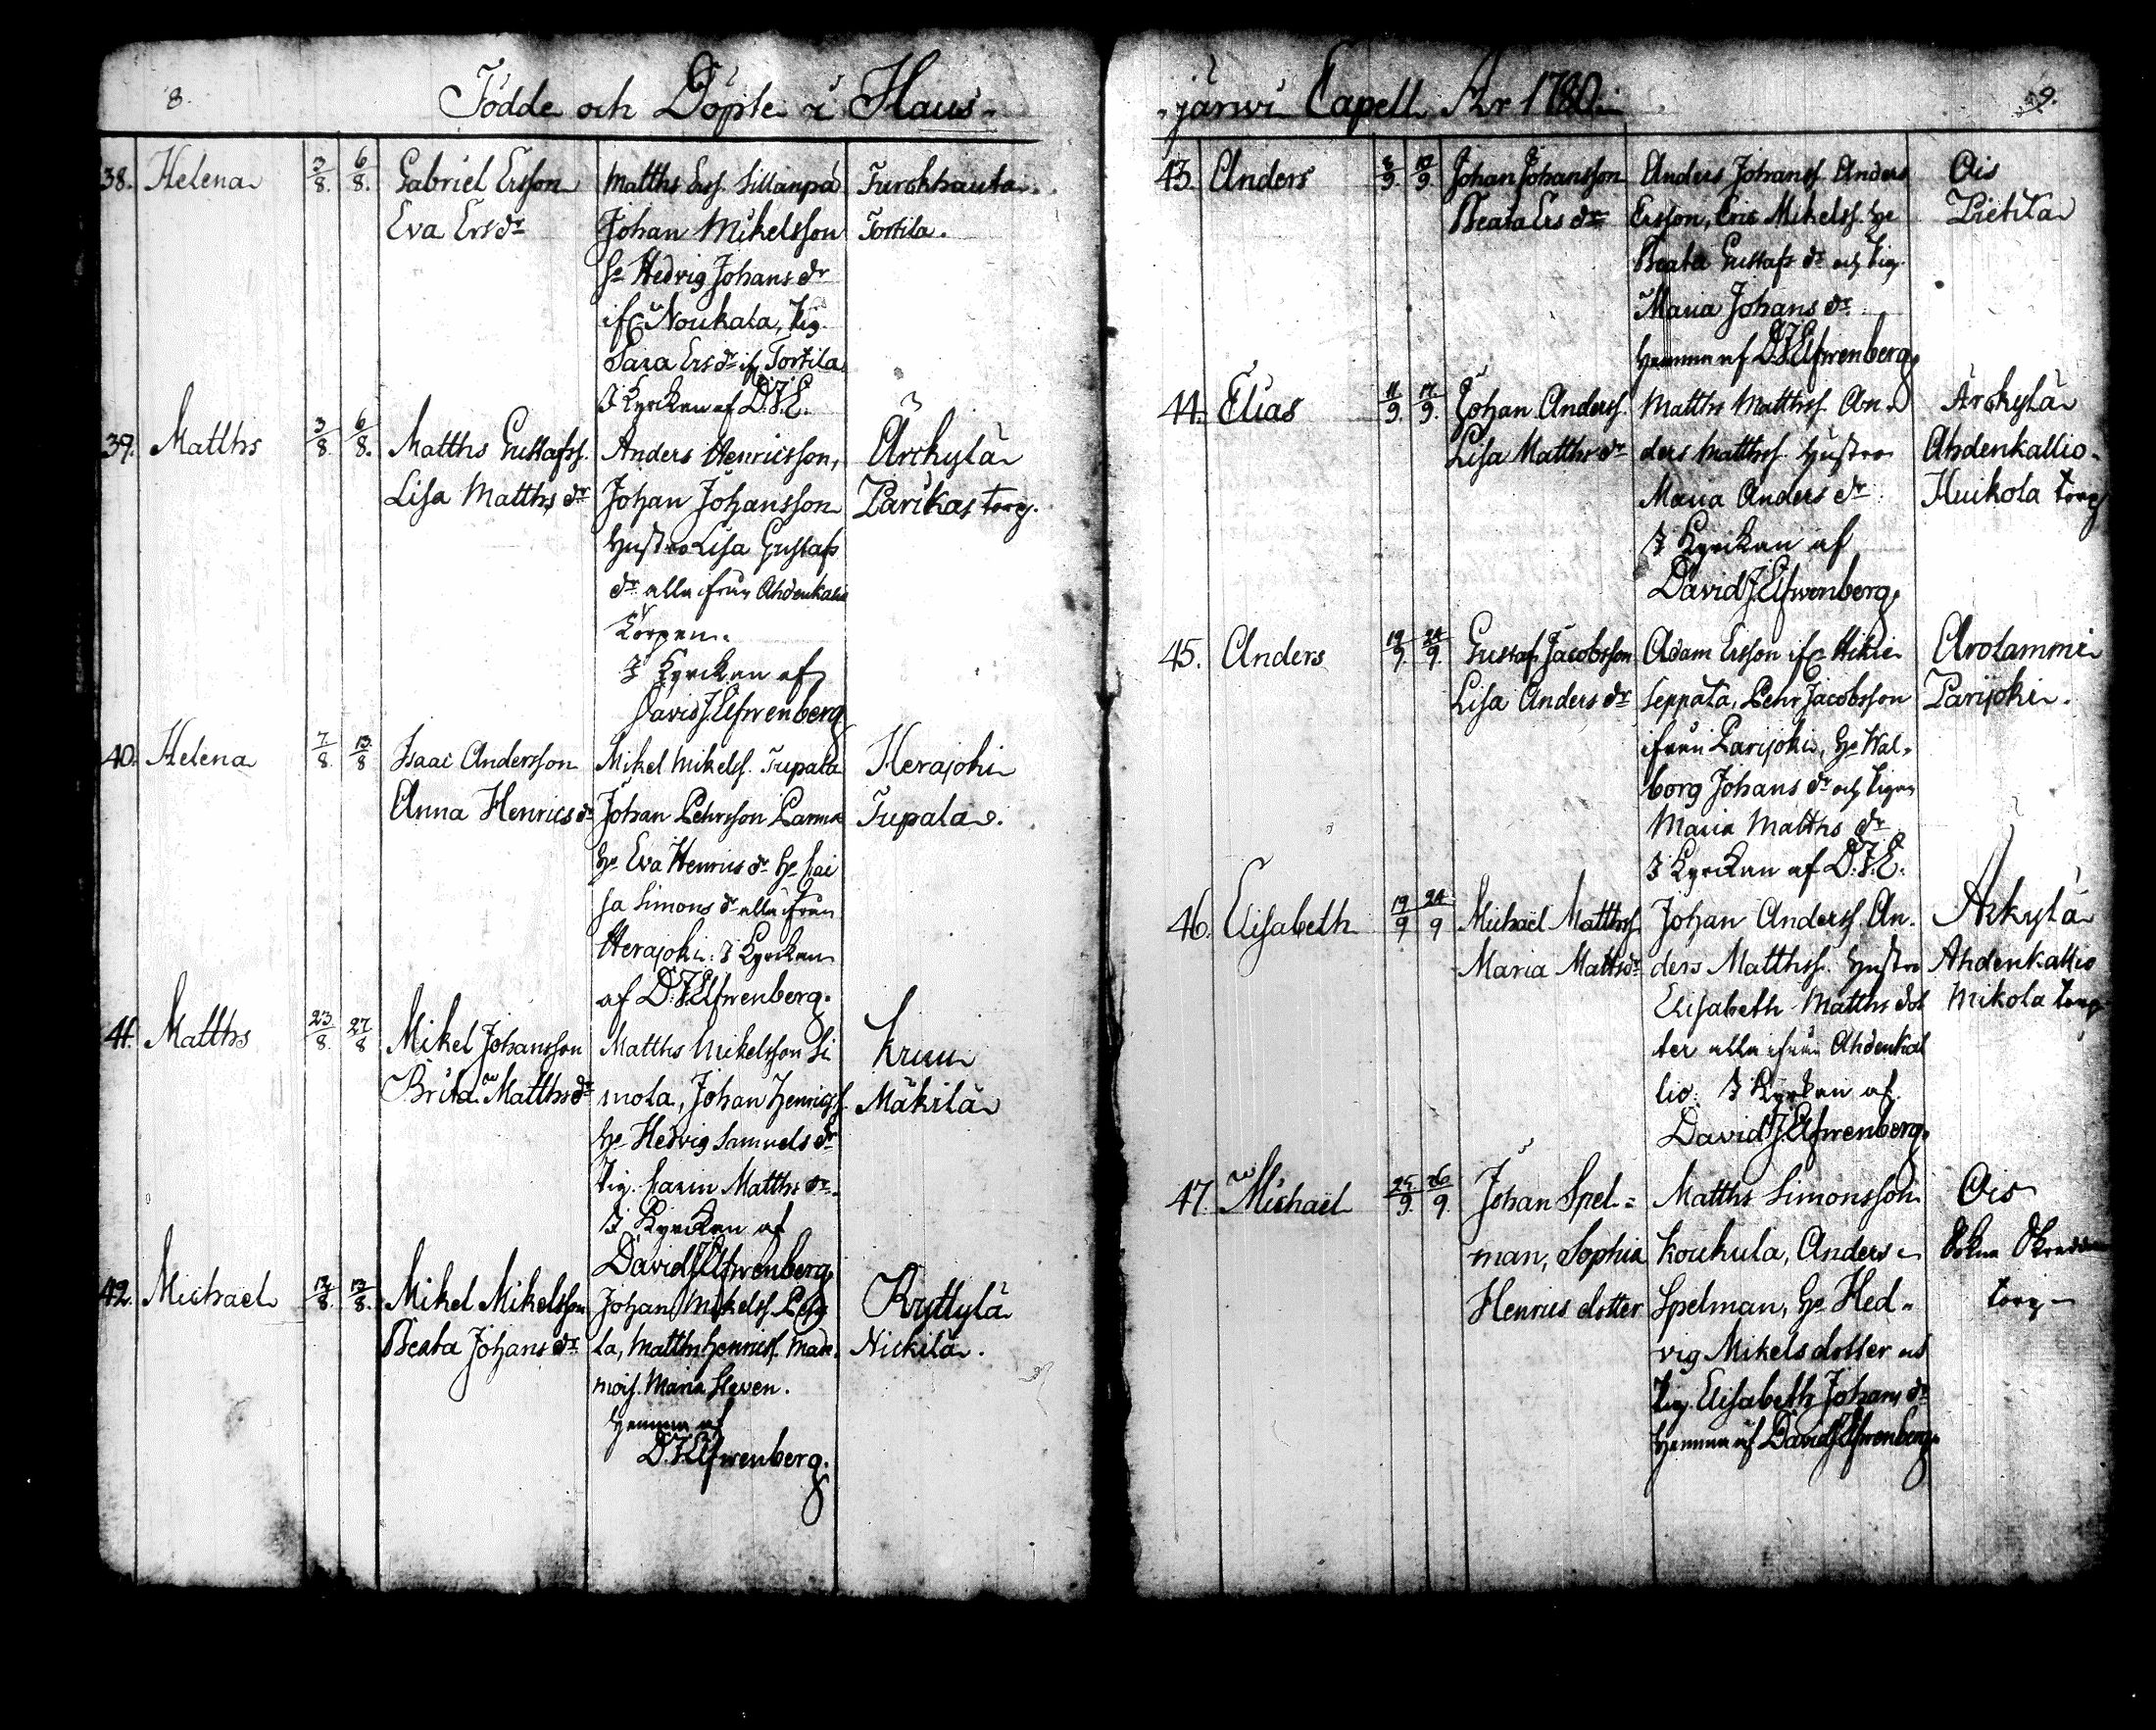 8.
Födde och Döpte i Haus-
38. Helena 3/8. 6/8. Gabriel Ersson
Eva Ersdr
Matths Erss. Sillanpä
Johan Mikelsson
Ho Hedvig Johans dr
ifr Noukala, Pig.
Sara Ersdr ifr Tortila
I Kyrckan af D.J.E.
Turckhauta
Tortila.
39. Matths 3/8. 6/8. Matths Gustafss.
Lisa Matths dr
Anders Henricsson,
Johan Johansson
Hustro Lisa Gustafs
dr alla ifrån Ahdenkalio
Torpen.
I Kyrckan af
David J. Elfwenberg
Arckylä
Parikas torp.
40. Helena 7/8. 13/8 Isaac Andersson
Anna Henrics dr
Mikel Mikelss. Tupala
Johan Pehrsson Parma
Ho Eva Henrics dr Ho Cai
sa Simons dr alla ifrån
Herajoki. I Kyrckan
af D.J. Elfwenberg.
Herajoki
Tupala.
41. Matths 23/8. 27/8 Mikel Johansson
Brita Matths dr
Matths Mikelsson Si
mola, Johan Henricss.
Ho Hedvig Samuels dr
Pig. Carin Matths dr
I Kyrckan af
David J. Elfwenberg.
Kruu
Mäkilä
42. Michael 12/8. 13/8. Mikel Mikelsson
Beata Johans dr
Johan Mikelss.
la, Matths Henricss. Made-
mois. Maria Steven.
Hemma af
D.J. Elfwenberg.
Kryttylä
Nickilä.
-järwi Capell År 1780.
9.
43. Anders 8/9. 10/9. Johan Johansson
Beata Ers dr
Anders Johanss. Anders
Ersson, Eric Mikelss. Ho
Beata Gustafs dr och Pig.
Maria Johans dr.
Hemma af D.J. Elfwenberg.
Ois
Pietila
44. Elias 11/9. 17/9. Johan Anderss.
Lisa Matths dr
Matths Matthss. An-
ders Matthss. Hustro
Maria Anders dr
I Kyrckan af
David J. Elfwenberg.
Ärckylä
Ahdenkallio
Huikola torp
45. Anders 19/9. 24/9. Gustaf Jacobsson
Lisa Anders dr
Adam Ersson ifr Hikie
Seppala, Pehr Jacobsson
ifrån Parijoki, Ho Wal-
borg Johans dr och Pigan
Maria Matths dr
I Kyrckan af D.J.E.
Arolammi
Parijoki.
46. Elisabeth 19/9 24/9 Michaël Matthss.
Maria Mattsdr
Johan Anderss. An-
ders Matthss. Hustro
Elisabeth Matths dot
ter alla ifrån Ahdenkal
lio. I Kyrckan af
David J. Elfwenberg.
Arkylä
Ahdenkallio
Mikola torp
47. Michaël 25/9. 26/9. Johan Spel-
man, Sophia
Henrics dotter
Matths Simonsson
Koukula, Anders
Spelman, Ho Hed-
vig Mikelsdotter och
Pig. Elisabeth Johans dr
Hemma af David J. Elfwenberg.
Ois
torp